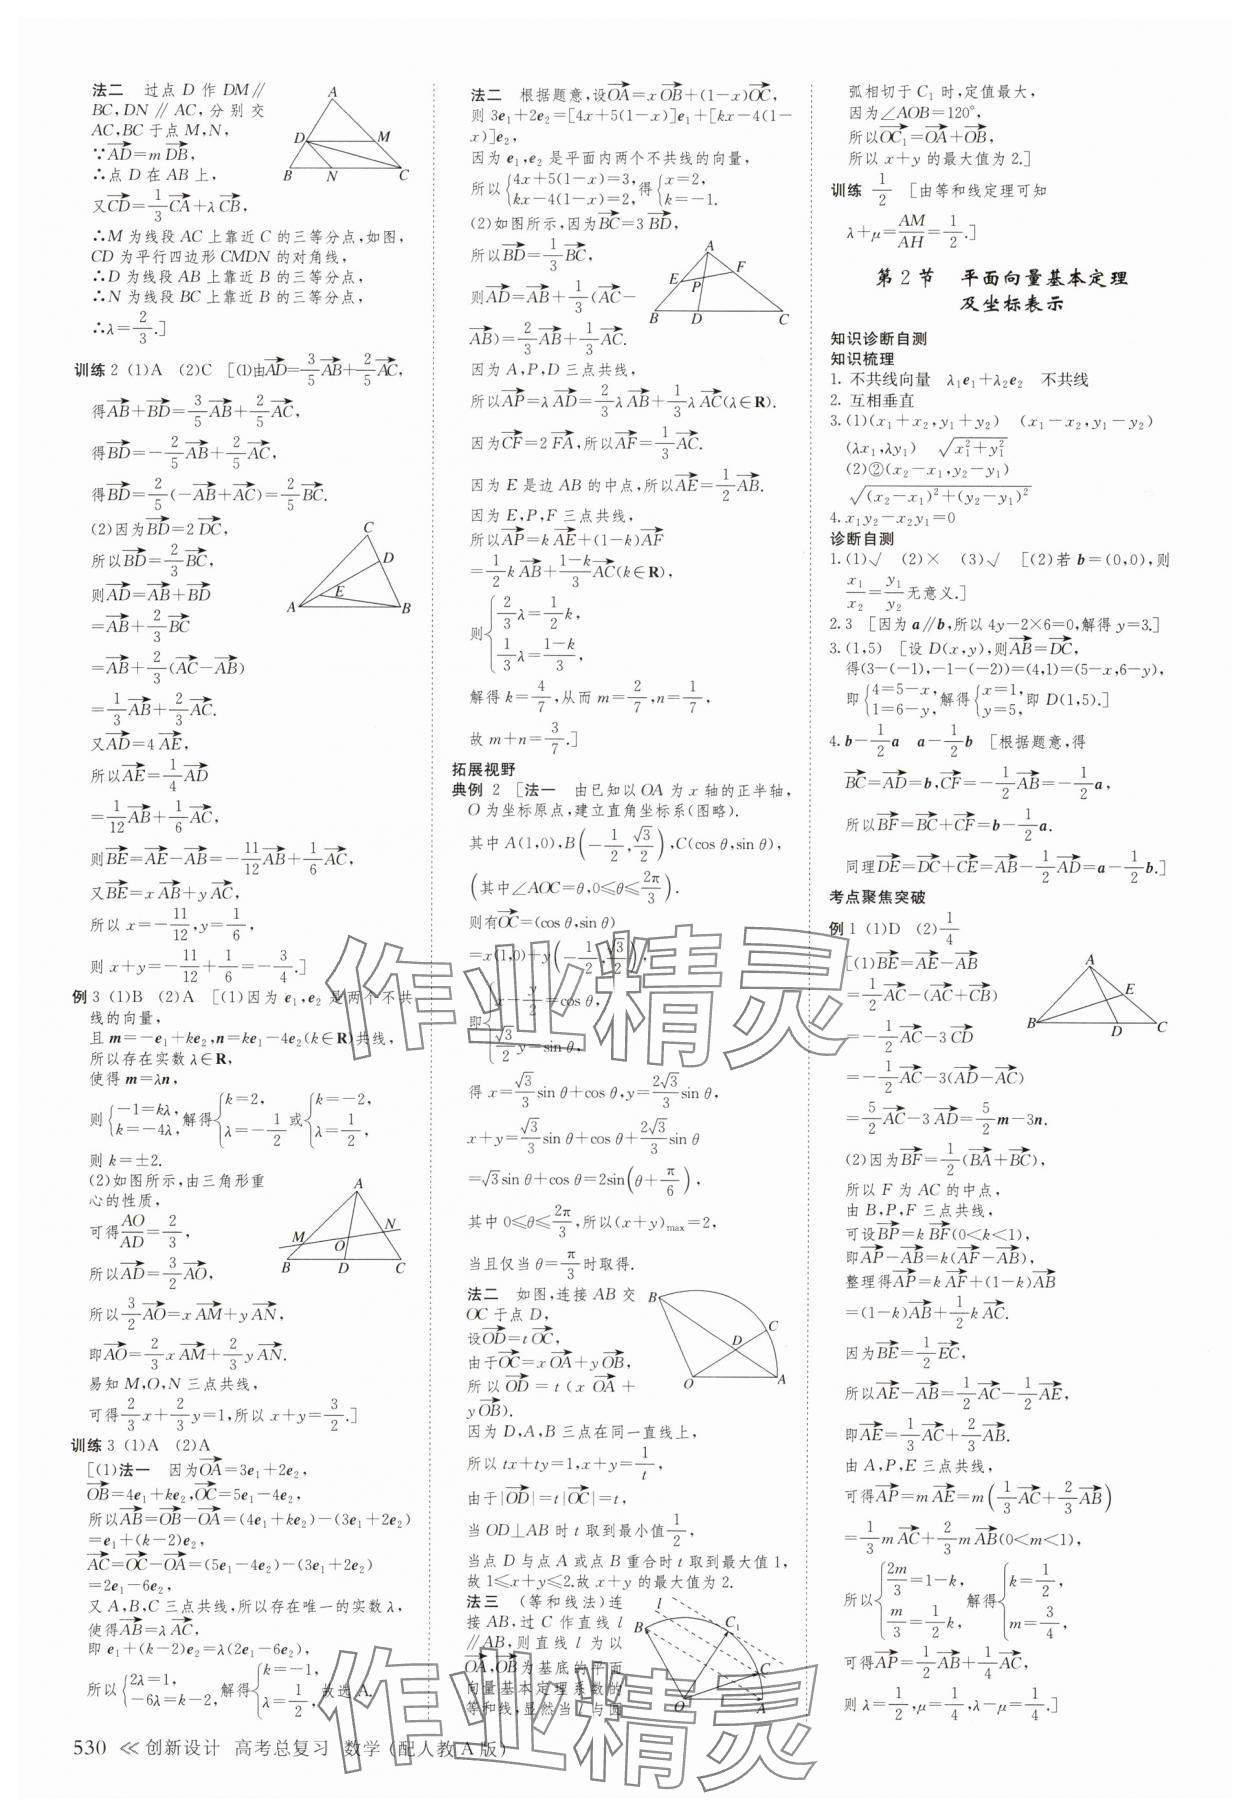 法二 过点 D 作 DM∥
BC,DN∥AC,分别交
AC,BC 于点 M,N,
∵$\overrightarrow{AD}$=m$\overrightarrow{DB}$,
∴点 D 在 AB 上,
又$\overrightarrow{CD}$=$\frac{1}{3}\overrightarrow{CA}$+λ$\overrightarrow{CB}$,
∴M 为线段 AC 上靠近 C 的三等分点,如图,
CD 为平行四边形 CMDN 的对角线,
∴D 为线段 AB 上靠近 B 的三等分点,
∴N 为线段 BC 上靠近 B 的三等分点,
∴λ=$\frac{2}{3}$.]
训练 2 (1)A (2)C [(1)由$\overrightarrow{AD}$=$\frac{3}{5}\overrightarrow{AB}$+$\frac{2}{5}\overrightarrow{AC}$,
得$\overrightarrow{AB}$+$\overrightarrow{BD}$=$\frac{3}{5}\overrightarrow{AB}$+$\frac{2}{5}\overrightarrow{AC}$,
得$\overrightarrow{BD}$=-$\frac{2}{5}\overrightarrow{AB}$+$\frac{2}{5}\overrightarrow{AC}$,
得$\overrightarrow{BD}$=$\frac{2}{5}$(-$\overrightarrow{AB}$+$\overrightarrow{AC}$)=$\frac{2}{5}\overrightarrow{BC}$.
(2)因为$\overrightarrow{BD}$=2$\overrightarrow{DC}$,
所以$\overrightarrow{BD}$=$\frac{2}{3}\overrightarrow{BC}$,
则$\overrightarrow{AD}$=$\overrightarrow{AB}$+$\overrightarrow{BD}$
=$\overrightarrow{AB}$+$\frac{2}{3}\overrightarrow{BC}$
=$\overrightarrow{AB}$+$\frac{2}{3}$($\overrightarrow{AC}$-$\overrightarrow{AB}$)
=$\frac{1}{3}\overrightarrow{AB}$+$\frac{2}{3}\overrightarrow{AC}$.
又$\overrightarrow{AD}$=4$\overrightarrow{AE}$,
所以$\overrightarrow{AE}$=$\frac{1}{4}\overrightarrow{AD}$
=$\frac{1}{12}\overrightarrow{AB}$+$\frac{1}{6}\overrightarrow{AC}$,
则$\overrightarrow{BE}$=$\overrightarrow{AE}$-$\overrightarrow{AB}$=-$\frac{11}{12}\overrightarrow{AB}$+$\frac{1}{6}\overrightarrow{AC}$,
又$\overrightarrow{BE}$=x$\overrightarrow{AB}$+y$\overrightarrow{AC}$,
所以 x=-$\frac{11}{12}$,y=$\frac{1}{6}$,
则 x+y=-$\frac{11}{12}$+$\frac{1}{6}$=-$\frac{3}{4}$.]
例 3 (1)B (2)A [(1)因为 e₁,e₂ 是两个不共
线的向量,
且 m=-e₁+ke₂,n=ke₁-4e₂(k∈R)共线,
所以存在实数 λ∈R,
使得 m=λn,
则{-1=kλ, k=-4λ, 解得{k=2, λ=-$\frac{1}{2}$或{k=-2, λ=$\frac{1}{2}$,
则 k=±2.
(2)如图所示,由三角形重
心的性质,
可得$\frac{AO}{AD}$=$\frac{2}{3}$,
所以$\overrightarrow{AD}$=$\frac{3}{2}\overrightarrow{AO}$,
所以$\frac{3}{2}\overrightarrow{AO}$=x$\overrightarrow{AM}$+y$\overrightarrow{AN}$,
即$\overrightarrow{AO}$=$\frac{2}{3}$x$\overrightarrow{AM}$+$\frac{2}{3}$y$\overrightarrow{AN}$.
易知 M,O,N 三点共线,
可得$\frac{2}{3}$x+$\frac{2}{3}$y=1,所以 x+y=$\frac{3}{2}$.]
训练 3 (1)A (2)A
[(1)法一 因为$\overrightarrow{OA}$=3e₁+2e₂,
$\overrightarrow{OB}$=4e₁+ke₂,$\overrightarrow{OC}$=5e₁-4e₂,
所以$\overrightarrow{AB}$=$\overrightarrow{OB}$-$\overrightarrow{OA}$=(4e₁+ke₂)-(3e₁+2e₂)
=e₁+(k-2)e₂,
$\overrightarrow{AC}$=$\overrightarrow{OC}$-$\overrightarrow{OA}$=(5e₁-4e₂)-(3e₁+2e₂)
=2e₁-6e₂,
又 A,B,C 三点共线,所以存在唯一的实数 λ,
使得$\overrightarrow{AB}$=λ$\overrightarrow{AC}$,
即 e₁+(k-2)e₂=λ(2e₁-6e₂),
所以{2λ=1, -6λ=k-2, 解得{k=-1, λ=$\frac{1}{2}$, 故选 A.
法二 根据题意,设$\overrightarrow{OA}$=x$\overrightarrow{OB}$+(1-x)$\overrightarrow{OC}$,
则 3e₁+2e₂=[4x+5(1-x)]e₁+[kx-4(1-
x)]e₂,
因为 e₁,e₂ 是平面内两个不共线的向量,
所以{4x+5(1-x)=3, kx-4(1-x)=2, 得{x=2, k=-1.
(2)如图所示,因为$\overrightarrow{BC}$=3$\overrightarrow{BD}$,
所以$\overrightarrow{BD}$=$\frac{1}{3}\overrightarrow{BC}$,
则$\overrightarrow{AD}$=$\overrightarrow{AB}$+$\frac{1}{3}$($\overrightarrow{AC}$-
$\overrightarrow{AB}$)=$\frac{2}{3}\overrightarrow{AB}$+$\frac{1}{3}\overrightarrow{AC}$.
因为 A,P,D 三点共线,
所以$\overrightarrow{AP}$=λ$\overrightarrow{AD}$=$\frac{2}{3}$λ$\overrightarrow{AB}$+$\frac{1}{3}$λ$\overrightarrow{AC}$(λ∈R).
因为$\overrightarrow{CF}$=2$\overrightarrow{FA}$,所以$\overrightarrow{AF}$=$\frac{1}{3}\overrightarrow{AC}$.
因为 E 是边 AB 的中点,所以$\overrightarrow{AE}$=$\frac{1}{2}\overrightarrow{AB}$.
因为 E,P,F 三点共线,
所以$\overrightarrow{AP}$=k$\overrightarrow{AE}$+(1-k)$\overrightarrow{AF}$
=$\frac{1}{2}$k$\overrightarrow{AB}$+$\frac{1-k}{3}\overrightarrow{AC}$(k∈R),
则{$\frac{2}{3}$λ=$\frac{1}{2}$k, $\frac{1}{3}$λ=$\frac{1-k}{3}$,
解得 k=$\frac{4}{7}$,从而 m=$\frac{2}{7}$,n=$\frac{1}{7}$,
故 m+n=$\frac{3}{7}$.]
拓展视野
典例 2 [法一 由已知以 OA 为 x 轴的正半轴,
O 为坐标原点,建立直角坐标系(图略).
其中 A(1,0),B(-$\frac{1}{2}$,$\frac{\sqrt{3}}{2}$),C(cos θ,sin θ),
(其中∠AOC=θ,0≤θ≤$\frac{2π}{3}$).
则有$\overrightarrow{OC}$=(cos θ,sin θ)
=x(1,0)+y(-$\frac{1}{2}$,$\frac{\sqrt{3}}{2}$),
即{x-$\frac{y}{2}$=cos θ, $\frac{\sqrt{3}}{2}$y=sin θ,
得 x=$\frac{\sqrt{3}}{3}$sin θ+cos θ,y=$\frac{2\sqrt{3}}{3}$sin θ,
x+y=$\frac{\sqrt{3}}{3}$sin θ+cos θ+$\frac{2\sqrt{3}}{3}$sin θ
=√3sin θ+cos θ=2sin(θ+$\frac{π}{6}$),
其中 0≤θ≤$\frac{2π}{3}$,所以(x+y)$_{max}$=2,
当且仅当 θ=$\frac{π}{3}$时取得.
法二 如图,连接 AB 交
OC 于点 D,
设$\overrightarrow{OD}$=t$\overrightarrow{OC}$,
由于$\overrightarrow{OC}$=x$\overrightarrow{OA}$+y$\overrightarrow{OB}$,
所以$\overrightarrow{OD}$=t(x$\overrightarrow{OA}$+
y$\overrightarrow{OB}$).
因为 D,A,B 三点在同一直线上,
所以 tx+ty=1,x+y=$\frac{1}{t}$,
由于|$\overrightarrow{OD}$|=t|$\overrightarrow{OC}$|=t,
当 OD⊥AB 时 t 取到最小值$\frac{1}{2}$,
当点 D 与点 A 或点 B 重合时 t 取到最大值 1,
故 1≤x+y≤2.故 x+y 的最大值为 2.
法三 (等和线法)连
接 AB,过 C 作直线 l
∥AB,则直线 l 为以
$\overrightarrow{OA}$,$\overrightarrow{OB}$为基底的平面
向量基本定理系数的
等和线,显然当 l 与圆
弧相切于 C₁ 时,定值最大,
因为∠AOB=120°,
所以$\overrightarrow{OC_1}$=$\overrightarrow{OA}$+$\overrightarrow{OB}$,
所以 x+y 的最大值为 2.]
训练 $\frac{1}{2}$ [由等和线定理可知
λ+μ=$\frac{AM}{AH}$=$\frac{1}{2}$.]
第 2 节 平面向量基本定理
及坐标表示
知识诊断自测
知识梳理
1. 不共线向量 λ₁e₁+λ₂e₂ 不共线
2. 互相垂直
3. (1)(x₁+x₂,y₁+y₂) (x₁-x₂,y₁-y₂)
(λx₁,λy₁) $\sqrt{x_1^2+y_1^2}$
(2)②(x₂-x₁,y₂-y₁)
$\sqrt{(x_2-x_1)^2+(y_2-y_1)^2}$
4. x₁y₂-x₂y₁=0
诊断自测
1. (1)√ (2)× (3)√ [(2)若 b=(0,0),则
$\frac{x_1}{x_2}$=$\frac{y_1}{y_2}$无意义.]
2. 3 [因为 a∥b,所以 4y-2×6=0,解得 y=3.]
3. (1,5) [设 D(x,y),则$\overrightarrow{AB}$=$\overrightarrow{DC}$,
得(3-(-1),-1-(-2))=(4,1)=(5-x,6-y),
即{4=5-x, 1=6-y, 解得{x=1, y=5, 即 D(1,5).]
4. b-$\frac{1}{2}$a a-$\frac{1}{2}$b [根据题意,得
$\overrightarrow{BC}$=$\overrightarrow{AD}$=b,$\overrightarrow{CF}$=-$\frac{1}{2}\overrightarrow{AB}$=-$\frac{1}{2}$a,
所以$\overrightarrow{BF}$=$\overrightarrow{BC}$+$\overrightarrow{CF}$=b-$\frac{1}{2}$a.
同理$\overrightarrow{DE}$=$\overrightarrow{DC}$+$\overrightarrow{CE}$=$\overrightarrow{AB}$-$\frac{1}{2}\overrightarrow{AD}$=a-$\frac{1}{2}$b.]
考点聚焦突破
例 1 (1)D (2)$\frac{1}{4}$
[(1)$\overrightarrow{BE}$=$\overrightarrow{AE}$-$\overrightarrow{AB}$
=$\frac{1}{2}\overrightarrow{AC}$-($\overrightarrow{AC}$+$\overrightarrow{CB}$)
=-$\frac{1}{2}\overrightarrow{AC}$-3$\overrightarrow{CD}$
=-$\frac{1}{2}\overrightarrow{AC}$-3($\overrightarrow{AD}$-$\overrightarrow{AC}$)
=$\frac{5}{2}\overrightarrow{AC}$-3$\overrightarrow{AD}$=$\frac{5}{2}$m-3n.
(2)因为$\overrightarrow{BF}$=$\frac{1}{2}$($\overrightarrow{BA}$+$\overrightarrow{BC}$),
所以 F 为 AC 的中点,
由 B,P,F 三点共线,
可设$\overrightarrow{BP}$=k$\overrightarrow{BF}$(0<k<1),
即$\overrightarrow{AP}$-$\overrightarrow{AB}$=k($\overrightarrow{AF}$-$\overrightarrow{AB}$),
整理得$\overrightarrow{AP}$=k$\overrightarrow{AF}$+(1-k)$\overrightarrow{AB}$
=(1-k)$\overrightarrow{AB}$+$\frac{1}{2}$k$\overrightarrow{AC}$.
因为$\overrightarrow{BE}$=$\frac{1}{2}\overrightarrow{EC}$,
所以$\overrightarrow{AE}$-$\overrightarrow{AB}$=$\frac{1}{2}\overrightarrow{AC}$-$\frac{1}{2}\overrightarrow{AE}$,
即$\overrightarrow{AE}$=$\frac{1}{3}\overrightarrow{AC}$+$\frac{2}{3}\overrightarrow{AB}$.
由 A,P,E 三点共线,
可得$\overrightarrow{AP}$=m$\overrightarrow{AE}$=m($\frac{1}{3}\overrightarrow{AC}$+$\frac{2}{3}\overrightarrow{AB}$)
=$\frac{1}{3}$m$\overrightarrow{AC}$+$\frac{2}{3}$m$\overrightarrow{AB}$(0<m<1),
所以{$\frac{2m}{3}$=1-k, $\frac{m}{3}$=$\frac{1}{2}$k, 解得{k=$\frac{1}{2}$, m=$\frac{3}{4}$,
可得$\overrightarrow{AP}$=$\frac{1}{2}\overrightarrow{AB}$+$\frac{1}{4}\overrightarrow{AC}$,
则 λ=$\frac{1}{2}$,μ=$\frac{1}{4}$,λ-μ=$\frac{1}{4}$.]
530 ≪ 创新设计 高考总复习 数学(配人教 A 版)
作业精灵
作业精灵